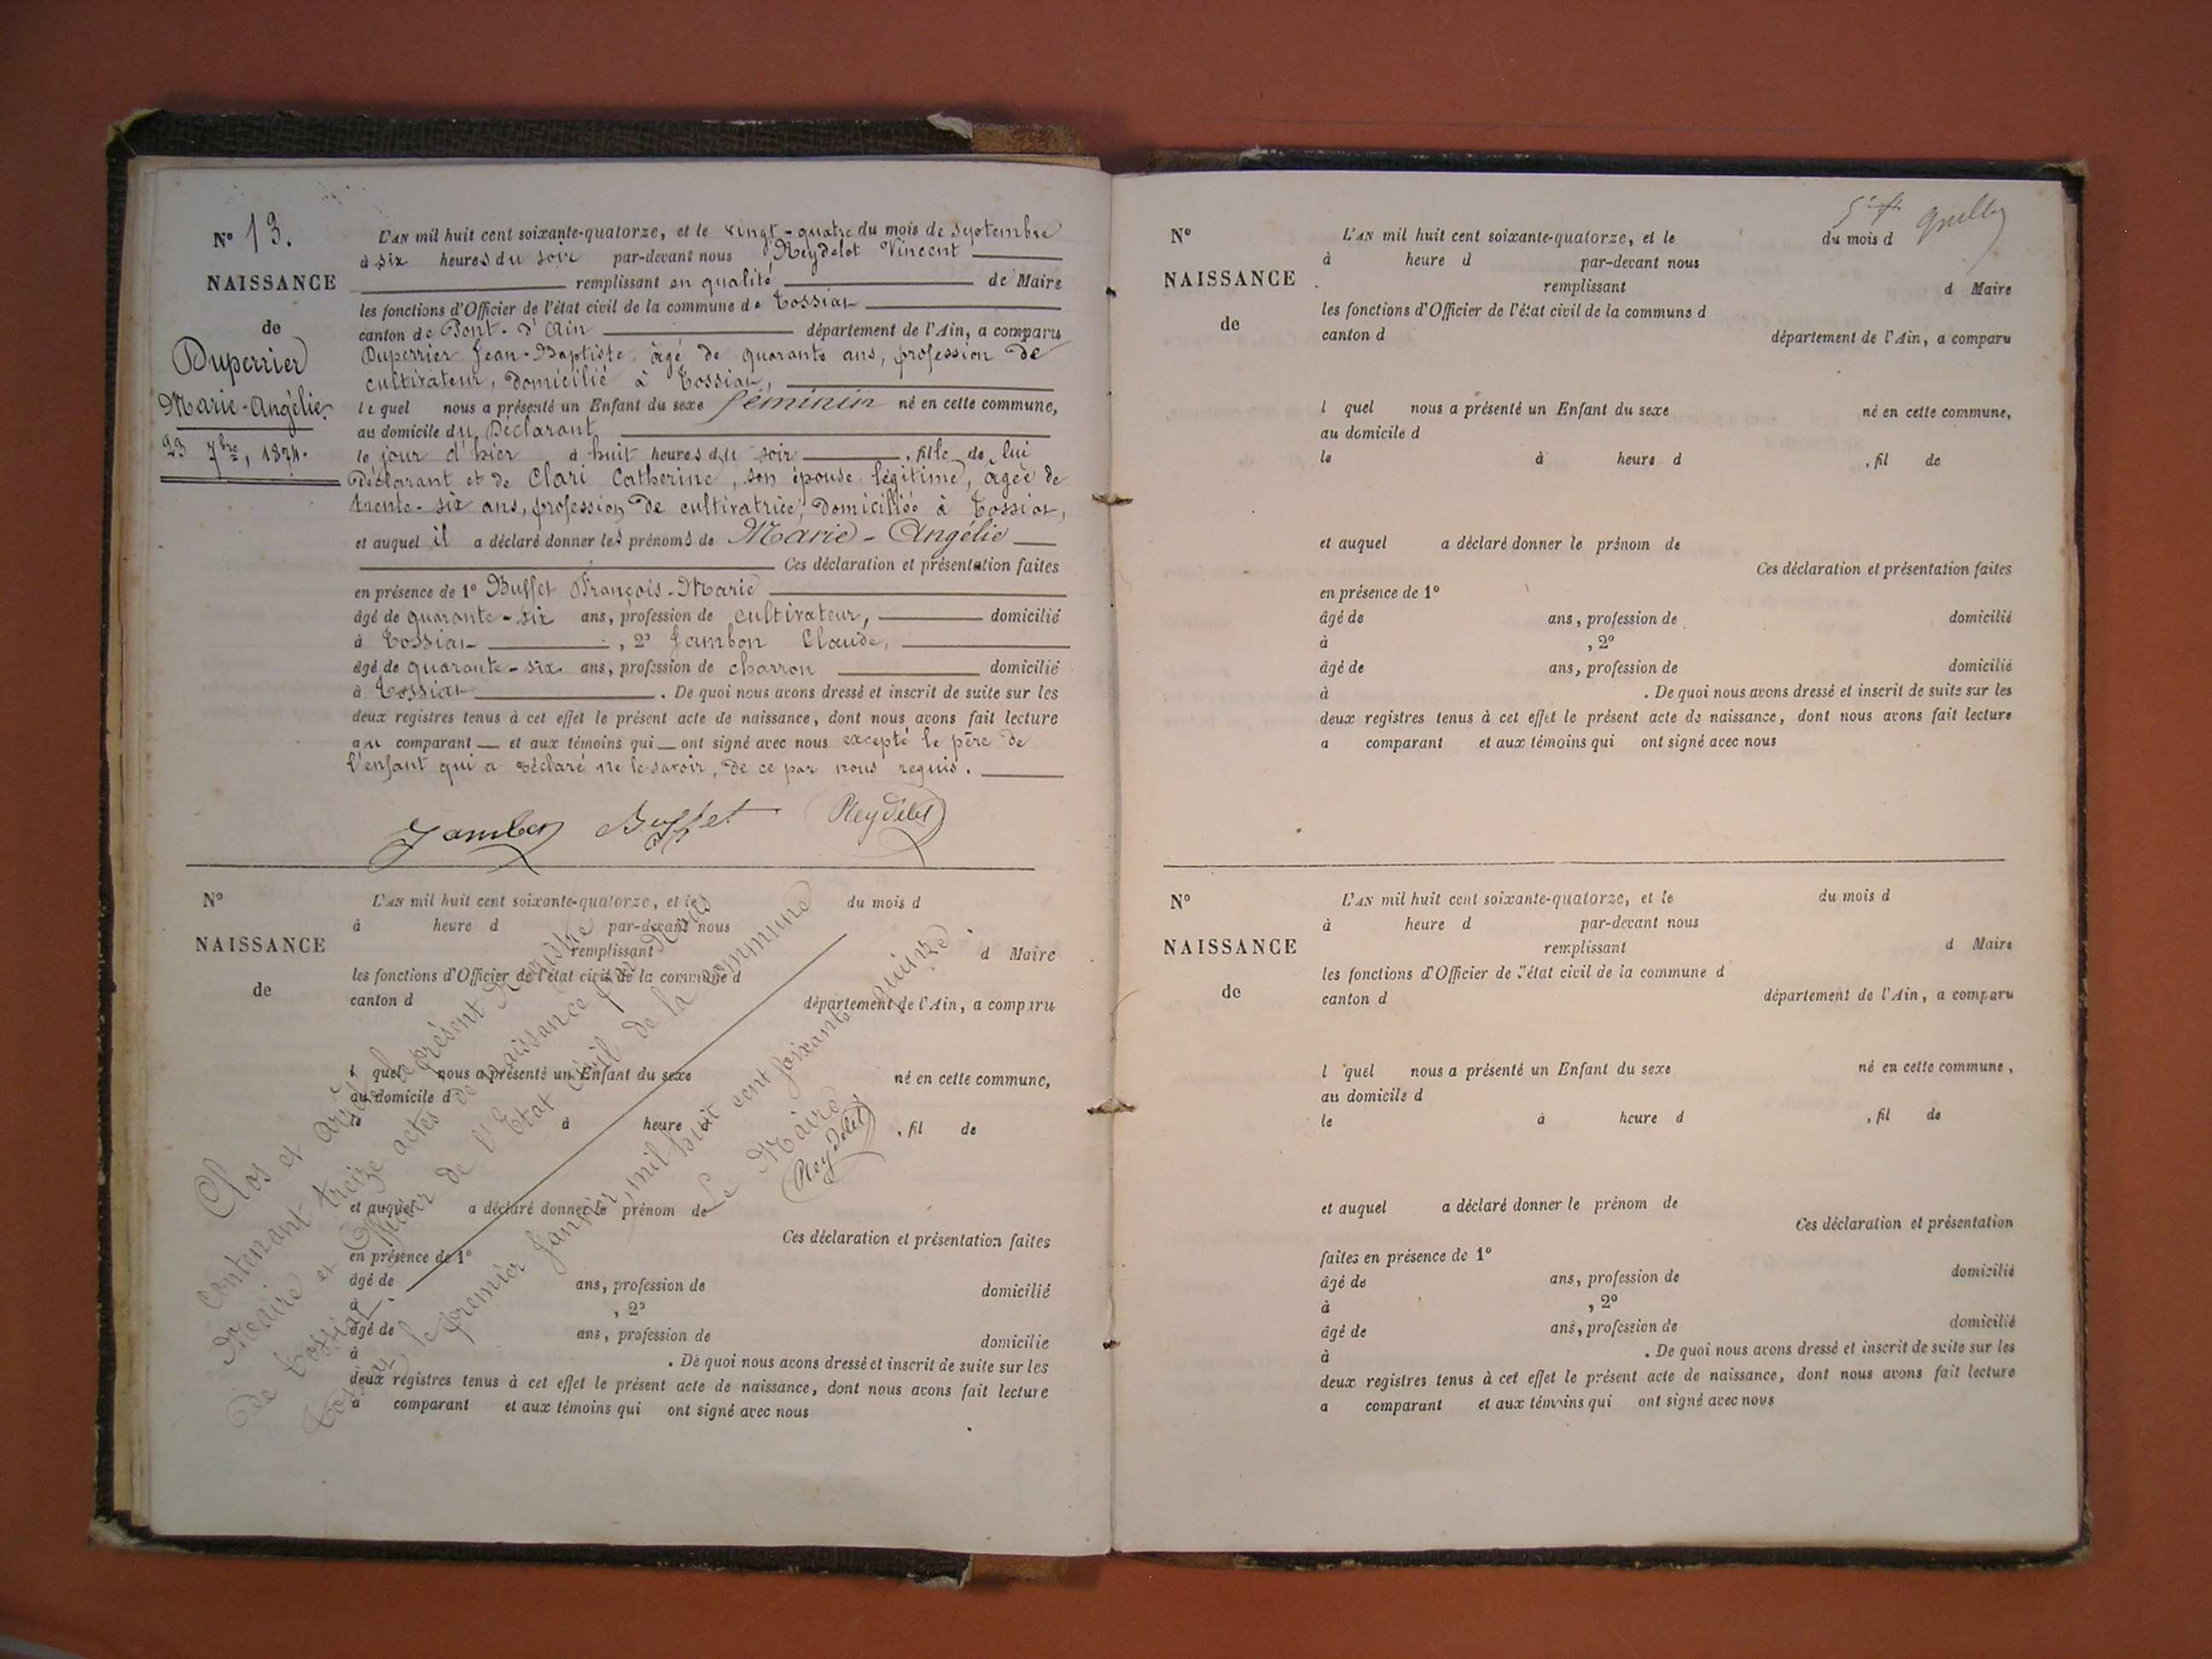 N° 13.
NAISSANCE
de
Duperrier
Marie-Angélie
23 7bre, 1874.
L'AN mil huit cent soixante-quatorze, et le vingt-quatre du mois de Septembre
à six heures du soir par-devant nous Reydelet Vincent
remplissant en qualité de Maire
les fonctions d'Officier de l'état civil de la commune de Tossiat
canton de Pont-d'Ain département de l'Ain, a comparu
Duperrier Jean-Baptiste, âgé de quarante ans, profession de
cultivateur, domicilié à Tossiat,
lequel nous a présenté un Enfant du sexe féminin né en cette commune,
au domicile du Déclarant
le jour d'hier à huit heures du soir, fille de lui
Déclarant et de Clari Catherine, son épouse légitime, âgée de
trente-six ans, profession de cultivatrice, domiciliée à Tossiat,
et auquel il a déclaré donner les prénoms de Marie-Angélie
Ces déclaration et présentation faites
en présence de 1° Buffet François-Marie
âgé de quarante-six ans, profession de cultivateur, domicilié
à Tossiat, 2° Jambon Claude,
âgé de quarante-six ans, profession de charron domicilié
à Tossiat. De quoi nous avons dressé et inscrit de suite sur les
deux registres tenus à cet effet le présent acte de naissance, dont nous avons fait lecture
au comparant et aux témoins qui ont signé avec nous excepté le père de
l'enfant qui a déclaré ne le savoir, de ce par nous requis.
Jambon Buffet Reydelet
N°
NAISSANCE
de
L'AN mil huit cent soixante-quatorze, et le du mois d
à heure d par-devant nous
remplissant d Maire
les fonctions d'Officier de l'état civil de la commune d
canton d département de l'Ain, a comparu
l quel nous a présenté un Enfant du sexe né en cette commune,
au domicile d
le à heure d , fil de
et auquel a déclaré donner le prénom de
Ces déclaration et présentation faites
en présence de 1°
âgé de ans, profession de domicilié
à , 2°
âgé de ans, profession de domicilié
à . De quoi nous avons dressé et inscrit de suite sur les
deux registres tenus à cet effet le présent acte de naissance, dont nous avons fait lecture
a comparant et aux témoins qui ont signé avec nous
Clos et arrêté le présent Registre
contenant treize actes de naissance par Nous
Maire et Officier de l'Etat civil de la commune
de Tossiat.
Tossiat le premier Janvier mil huit cent soixante quinze
Le Maire
Reydelet
N°
NAISSANCE
de
L'AN mil huit cent soixante-quatorze, et le du mois d
à heure d par-devant nous
remplissant d Maire
les fonctions d'Officier de l'état civil de la commune d
canton d département de l'Ain, a comparu
l quel nous a présenté un Enfant du sexe né en cette commune,
au domicile d
le à heure d , fil de
et auquel a déclaré donner le prénom de
Ces déclaration et présentation faites
en présence de 1°
âgé de ans, profession de domicilié
à , 2°
âgé de ans, profession de domicilié
à . De quoi nous avons dressé et inscrit de suite sur les
deux registres tenus à cet effet le présent acte de naissance, dont nous avons fait lecture
a comparant et aux témoins qui ont signé avec nous
N°
NAISSANCE
de
L'AN mil huit cent soixante-quatorze, et le du mois d
à heure d par-devant nous
remplissant d Maire
les fonctions d'Officier de l'état civil de la commune d
canton d département de l'Ain, a comparu
l quel nous a présenté un Enfant du sexe né en cette commune,
au domicile d
le à heure d , fil de
et auquel a déclaré donner le prénom de
Ces déclaration et présentation
faites en présence de 1°
âgé de ans, profession de domicilié
à , 2°
âgé de ans, profession de domicilié
à . De quoi nous avons dressé et inscrit de suite sur les
deux registres tenus à cet effet le présent acte de naissance, dont nous avons fait lecture
a comparant et aux témoins qui ont signé avec nous